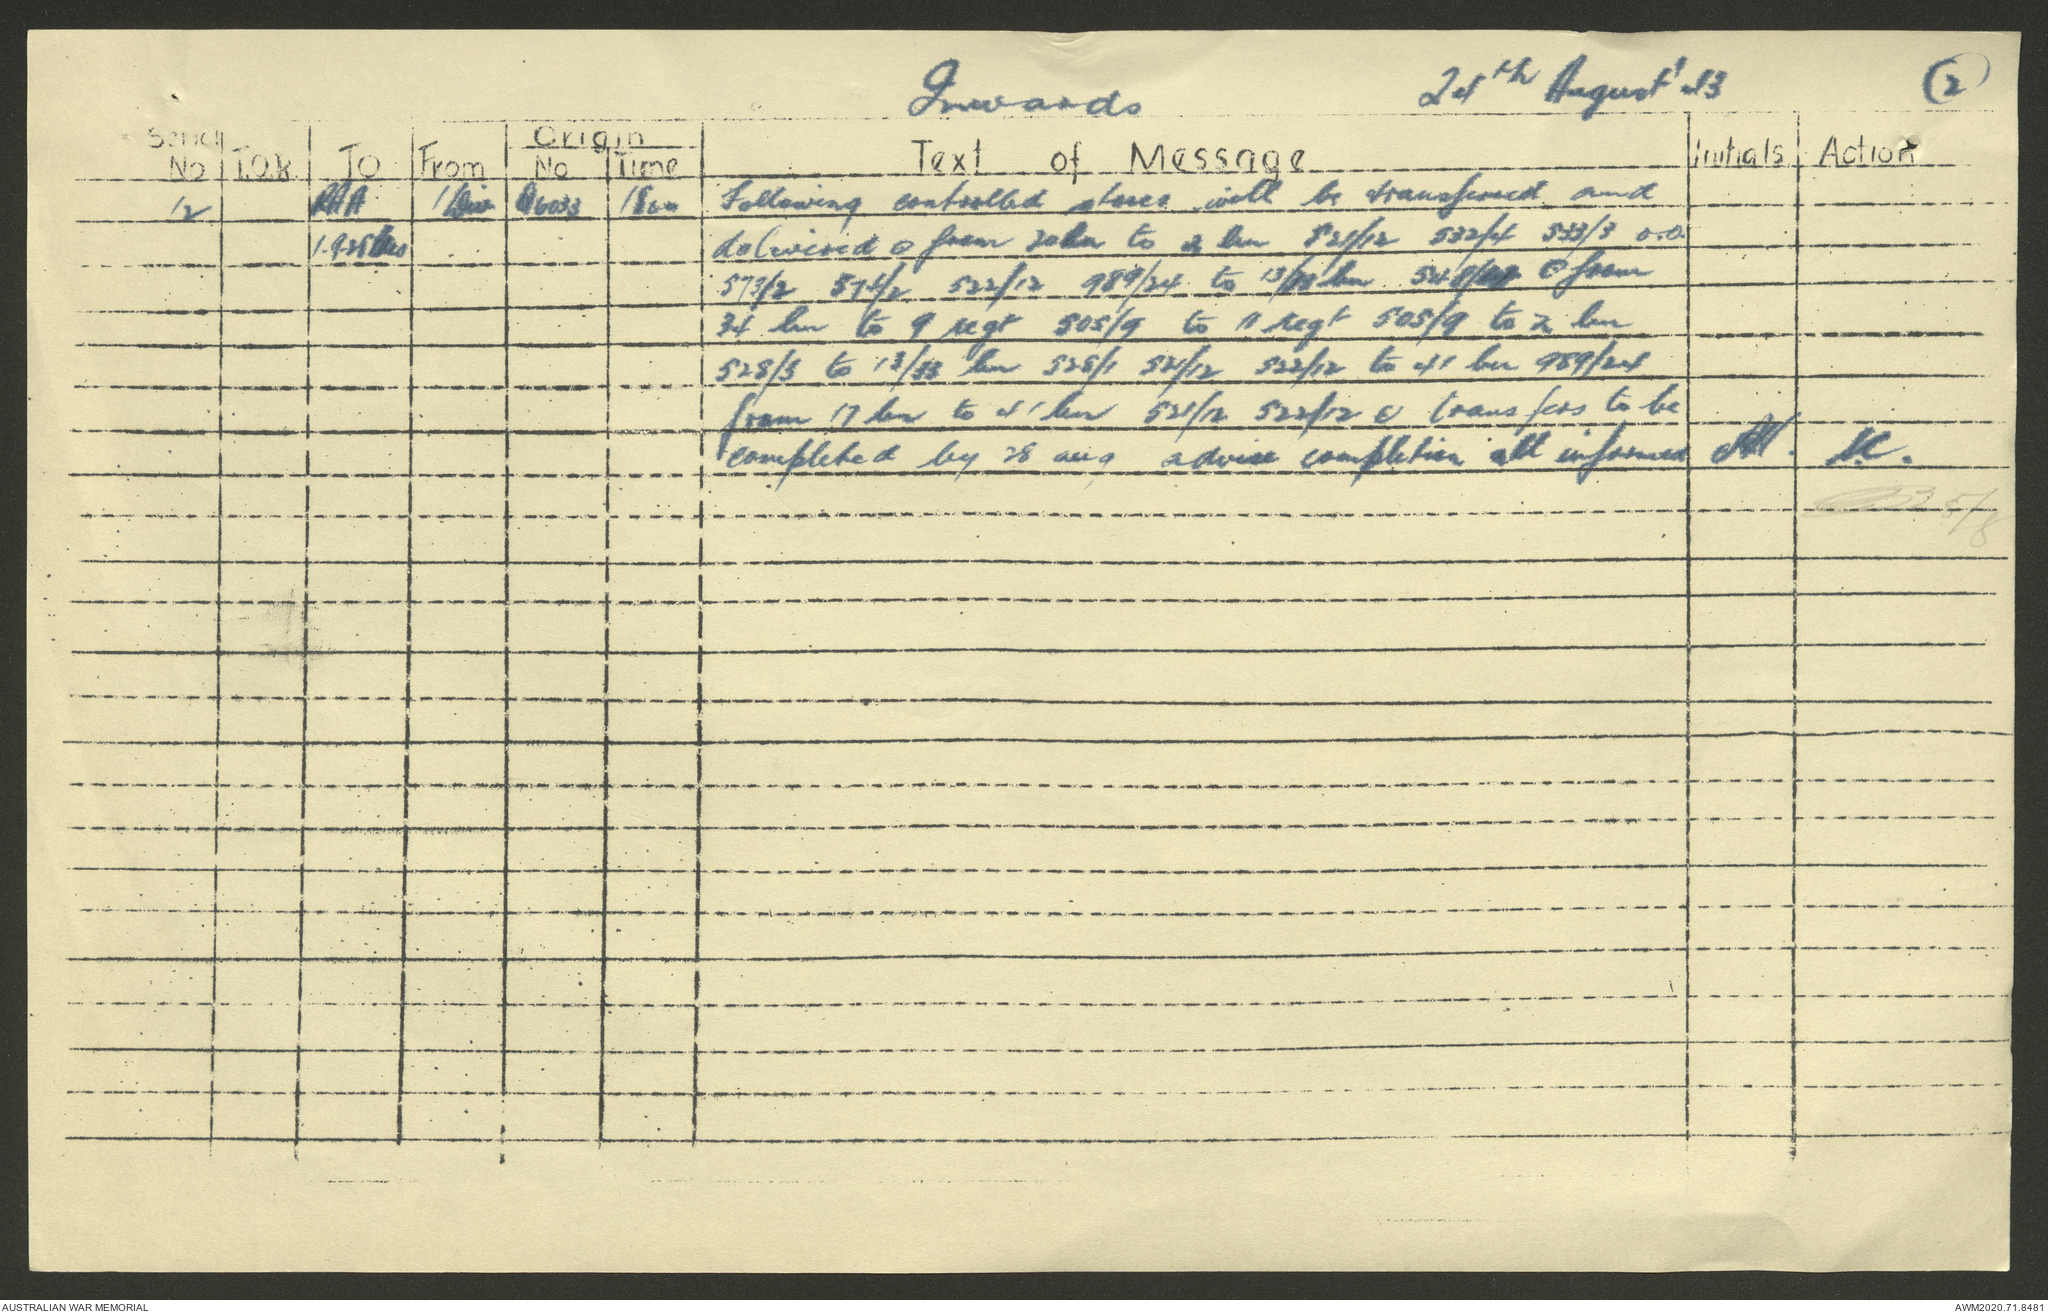 Inwards 24th August '43 (2)
Serial No T.O.R. TO From Origin No Time Text of Message Initials Action
12 RAA 1 Div Q6033 1800 Following controlled stores will be transferred and
1.9.25 delivered o from 20 bn to 2 bn 521/12 532/4 533/3 o.o.
573/2 574/2 522/12 989/24 to 13/33 bn o from
34 bn to 9 regt 505/9 to 11 regt 505/9 to 2 bn
528/3 to 13/33 bn 528/1 521/12 522/12 to 41 bn 989/24
from 17 bn to 41 bn 521/12 522/12 o transfers to be
completed by 28 aug advise completion all informed
AUSTRALIAN WAR MEMORIAL AWM2020.71.8481